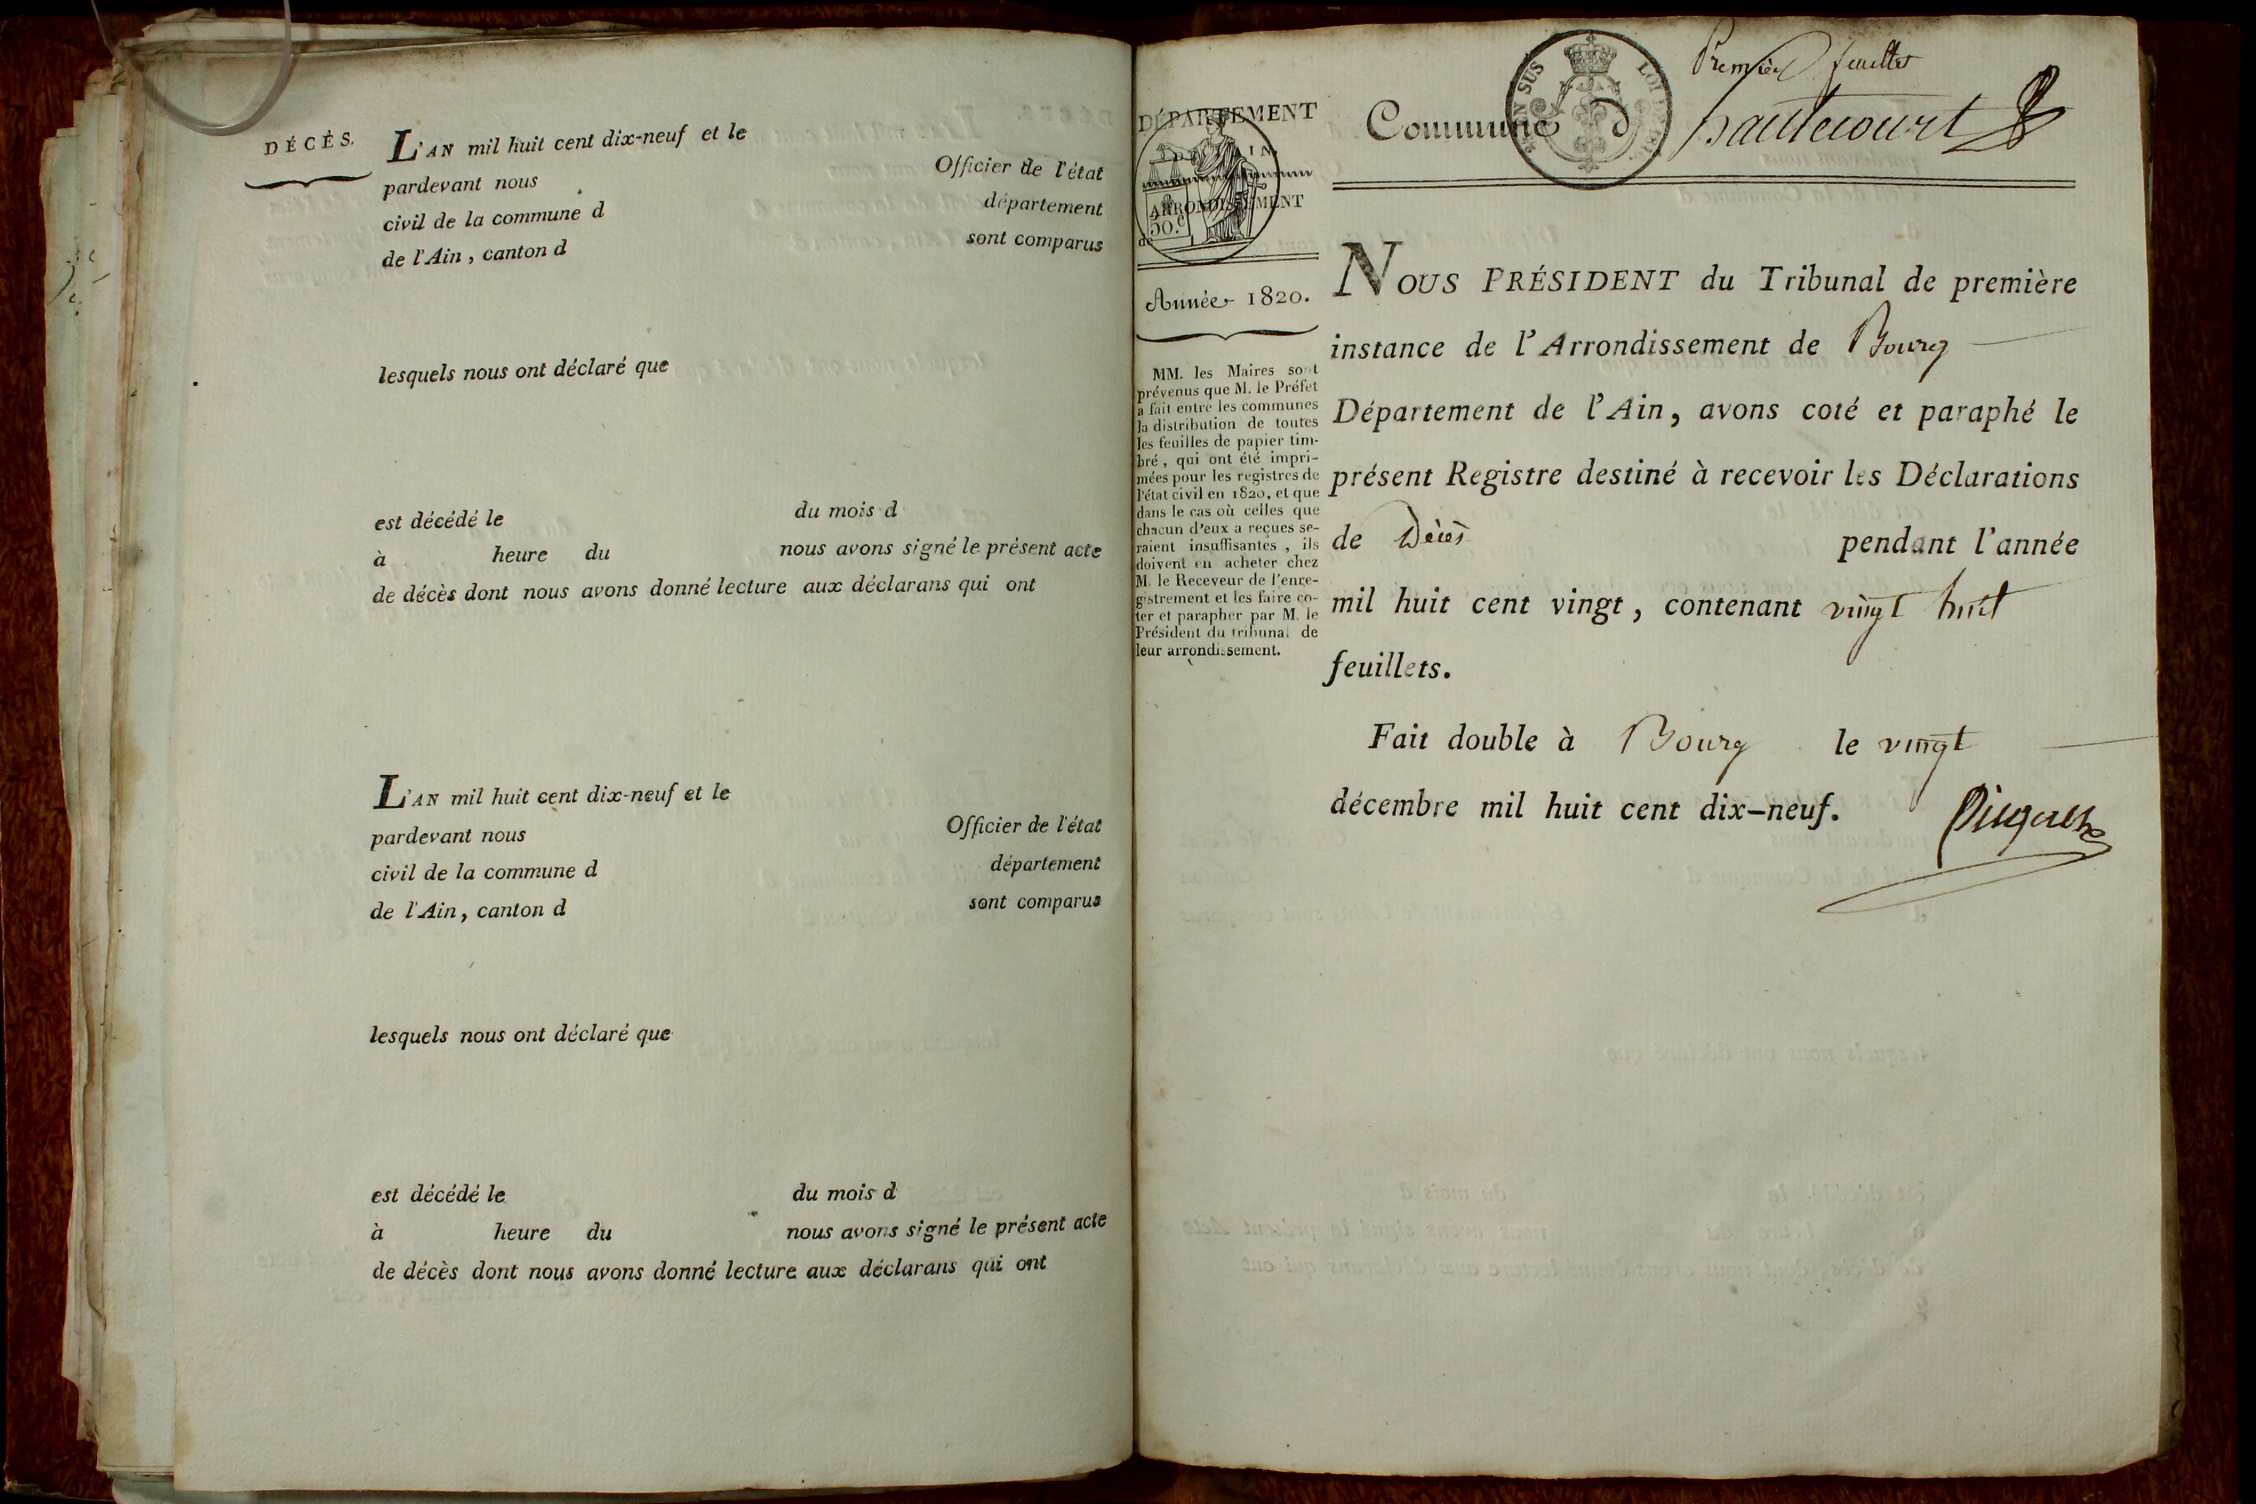 DÉCÈS.
L'AN mil huit cent dix-neuf et le
pardevant nous Officier de l'état
civil de la commune d département
de l'Ain, canton d sont comparus
lesquels nous ont déclaré que
est décédé le du mois d
à heure du nous avons signé le présent acte
de décès dont nous avons donné lecture aux déclarans qui ont
L'AN mil huit cent dix-neuf et le
pardevant nous Officier de l'état
civil de la commune d département
de l'Ain, canton d sont comparus
lesquels nous ont déclaré que
est décédé le du mois d
à heure du nous avons signé le présent acte
de décès dont nous avons donné lecture aux déclarans qui ont
Premier feuillet
DÉPARTEMENT
DE L'AIN.
ARRONDISSEMENT
de
50.c
Année 1820.
MM. les Maires sont
prévenus que M. le Préfet
a fait entre les communes
la distribution de toutes
les feuilles de papier tim-
bré, qui ont été impri-
mées pour les registres de
l'état civil en 1820, et que
dans le cas où celles que
chacun d'eux a reçues se-
raient insuffisantes, ils
doivent en acheter chez
M. le Receveur de l'enre-
gistrement et les faire co-
ter et parapher par M. le
Président du tribunal de
leur arrondissement.
Commune d hautecourt
NOUS PRÉSIDENT du Tribunal de première
instance de l'Arrondissement de Bourg
Département de l'Ain, avons coté et paraphé le
présent Registre destiné à recevoir les Déclarations
de Décès pendant l'année
mil huit cent vingt, contenant vingt huit
feuillets.
Fait double à Bourg le vingt
décembre mil huit cent dix-neuf.